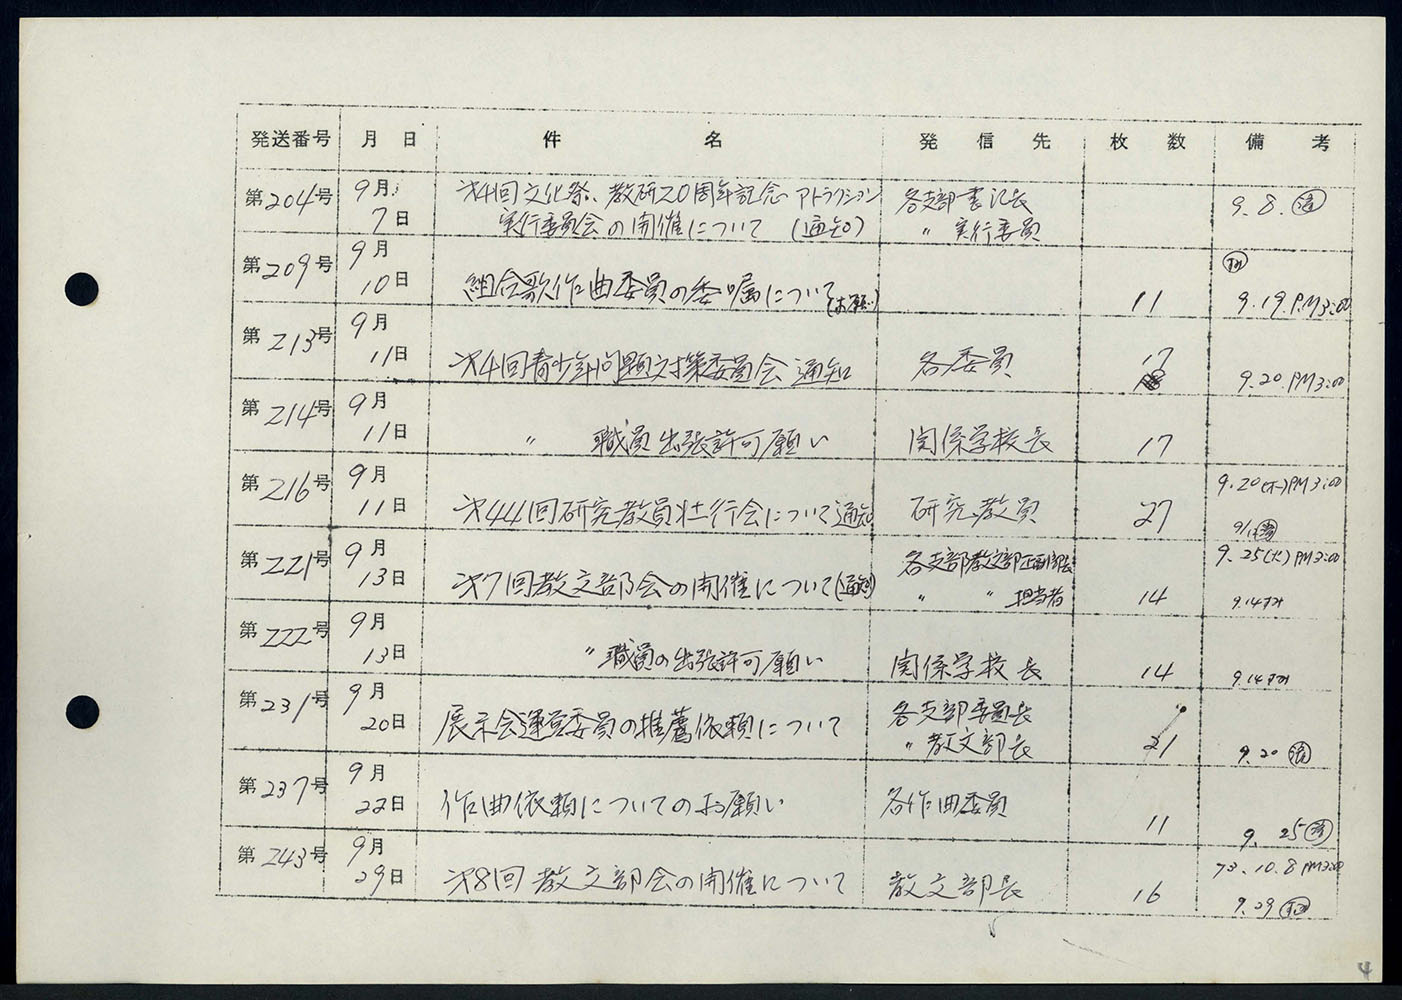 発送番号 月 日 件 名 発 信 先 枚 数 備 考
第204号 9月 7日  次4回文化祭、教研20周年記念 アトラクション 各支部書記長 9. 8. 済
実行委員会の開催について (通知) 〃 実行委員
第209号 9月 10日 組合歌作曲委員の委嘱について (お願い) 11 9.19.P.M3:00
第213号 9月 11日 次4回青少年问题対策委員会 通知 各委員 17 9.20.PM3:00
第214号 9月 11日 〃 職員出張許可願い 関係学校長 17
第216号 9月 11日 次44回研究教員壮行会について通知 研究教員 27 9.20(木)PM3:00
第221号 9月 13日 次7回教文部会の開催について(通知) 各支部教文部 9.25(火)PM3:00
〃 〃 担当者 14 9.14
第222号 9月 13日 〃職員の出張許可願い 関係学校長 14 9.14
第231号 9月 20日 展示会運営委員の推薦依頼について 各支部委員長
〃 教文部長 21 9.20 済
第237号 9月 22日 作曲依頼についてのお願い 各作曲委員 11 9. 25 済
第243号 9月 29日 次8回教文部会の開催について 教文部長 16 73.10.8 PM3:00
9.29
4